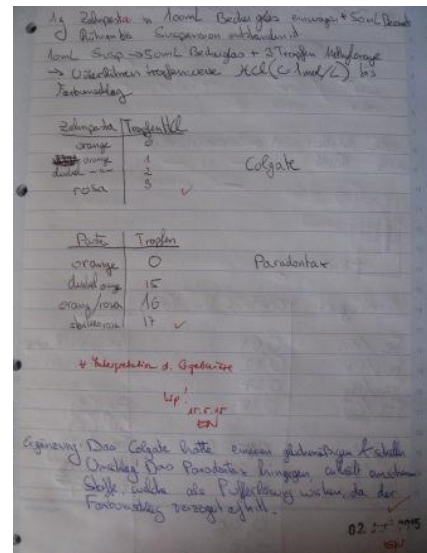 1g Zahnpasta in 100mL Becherglas einwiegen + 50mL
Rühren bis Suspension entstanden ist
10mL Susp → 50mL Becherglas + 3 Tropfen Methylorange
→ tropfenweise HCl (c=1mol/L) bis
Farbumschlag
Zahnpasta | Tropfen HCl
orange 0
orange 1
dunkel 2
rosa 3
Colgate
Paste | Tropfen
orange 0
Parodontax
dunkel orange 15
orange/rosa 16
rosa 17
+ Interpretation d. Ergebnisse
Up!
Ergänzung: Das Colgate hatte einen schnellen
Umschlag. Das Parodontax hingegen, enthält
Stoffe, welche als Pufferlösung wirken, da der
Farbumschlag verzögert eintritt.